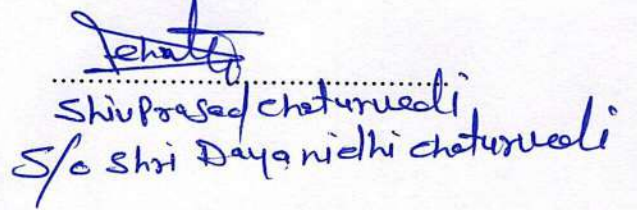 Shivprasad chaturvedi
S/o Shri Dayanidhi chaturvedi